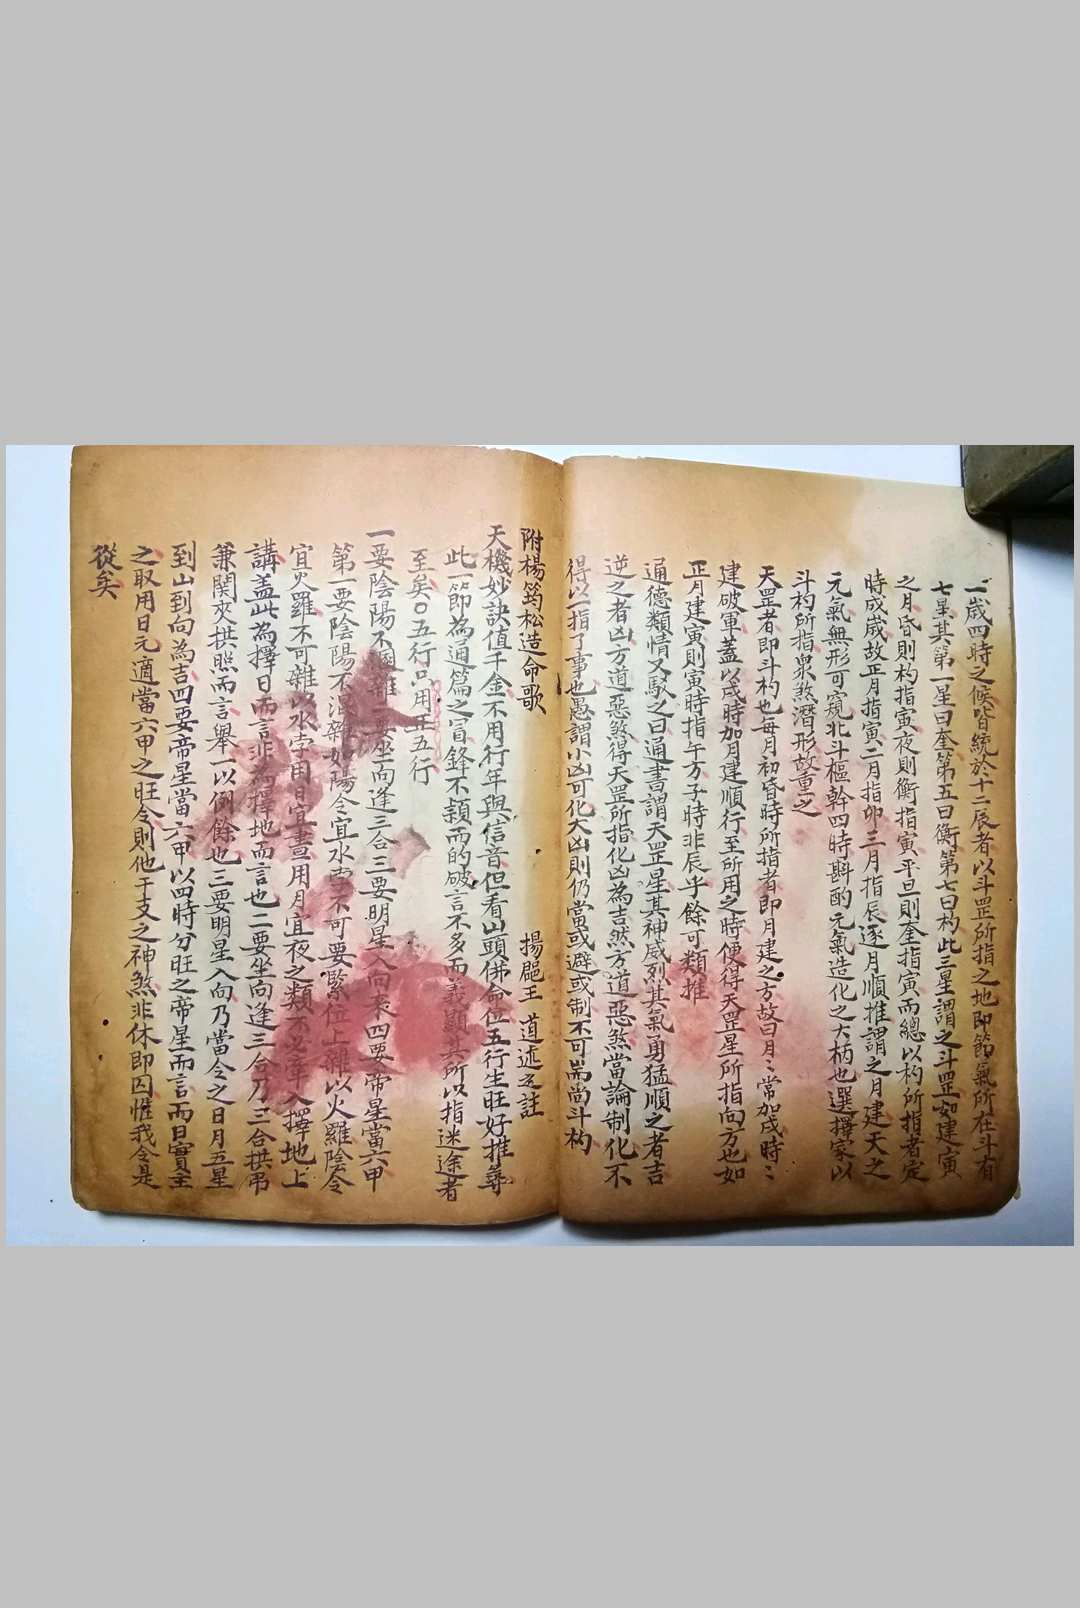 一歳四時之候皆統於十二辰者以斗罡所指之地即節氣所在斗有
七星其第一星曰奎第五曰衡第七曰杓此三星謂之斗罡如建寅
之月昏則杓指寅夜則衡指寅平旦則奎指寅而總以杓所指者定
時成歲故正月指寅二月指卯三月指辰逐月順推謂之月建天之
元氣無形可窺北斗樞幹四時斟酌元氣造化之大柄也選擇家以
斗杓所指衆煞潛形故重之
天罡者即斗杓也每月初昏時所指者即月建之方故曰月〻常加戌時〻
建破軍蓋以戌時加月建順行至所用之時便得天罡星所指向方也如
正月建寅則寅時指午方子時非辰乎餘可類推
通德類情又駁之曰通書謂天罡星其神威烈其氣勇猛順之者吉
逆之者凶方道惡煞得天罡所指化凶為吉然方道惡煞當論制化不
得以一指了事也愚謂小凶可化大凶則仍當或避或制不可耑尚斗杓
附楊筠松造命歌 揚 王道述之註
天機妙訣值千金不用行年與信音但看山頭併命位五行生旺好推尋
此一節為通篇之冒鋒不穎而的破言不多而義顯其所以指迷途者
至矣○五行只用正五行
一要陰陽不混雜二要坐向逢三合三要明星入向来四要帝星當六甲
第一要陰陽不混雜如陽令宜水孛不可要緊位上雜以火羅陰令
宜火羅不可雜以水孛用日宜晝用月宜夜之類不必牽入擇地上
講盖此為擇日而言非為擇地而言也二要坐向逢三合乃三合拱弔
兼関夾拱照而言舉一以例餘也三要明星入向乃當令之日月五星
到山到向為吉四要帝星當六甲以四時分旺之帝星而言而日實主
之取用日元適當六甲之旺令則他干支之神煞非休即囚惟我令是
從矣